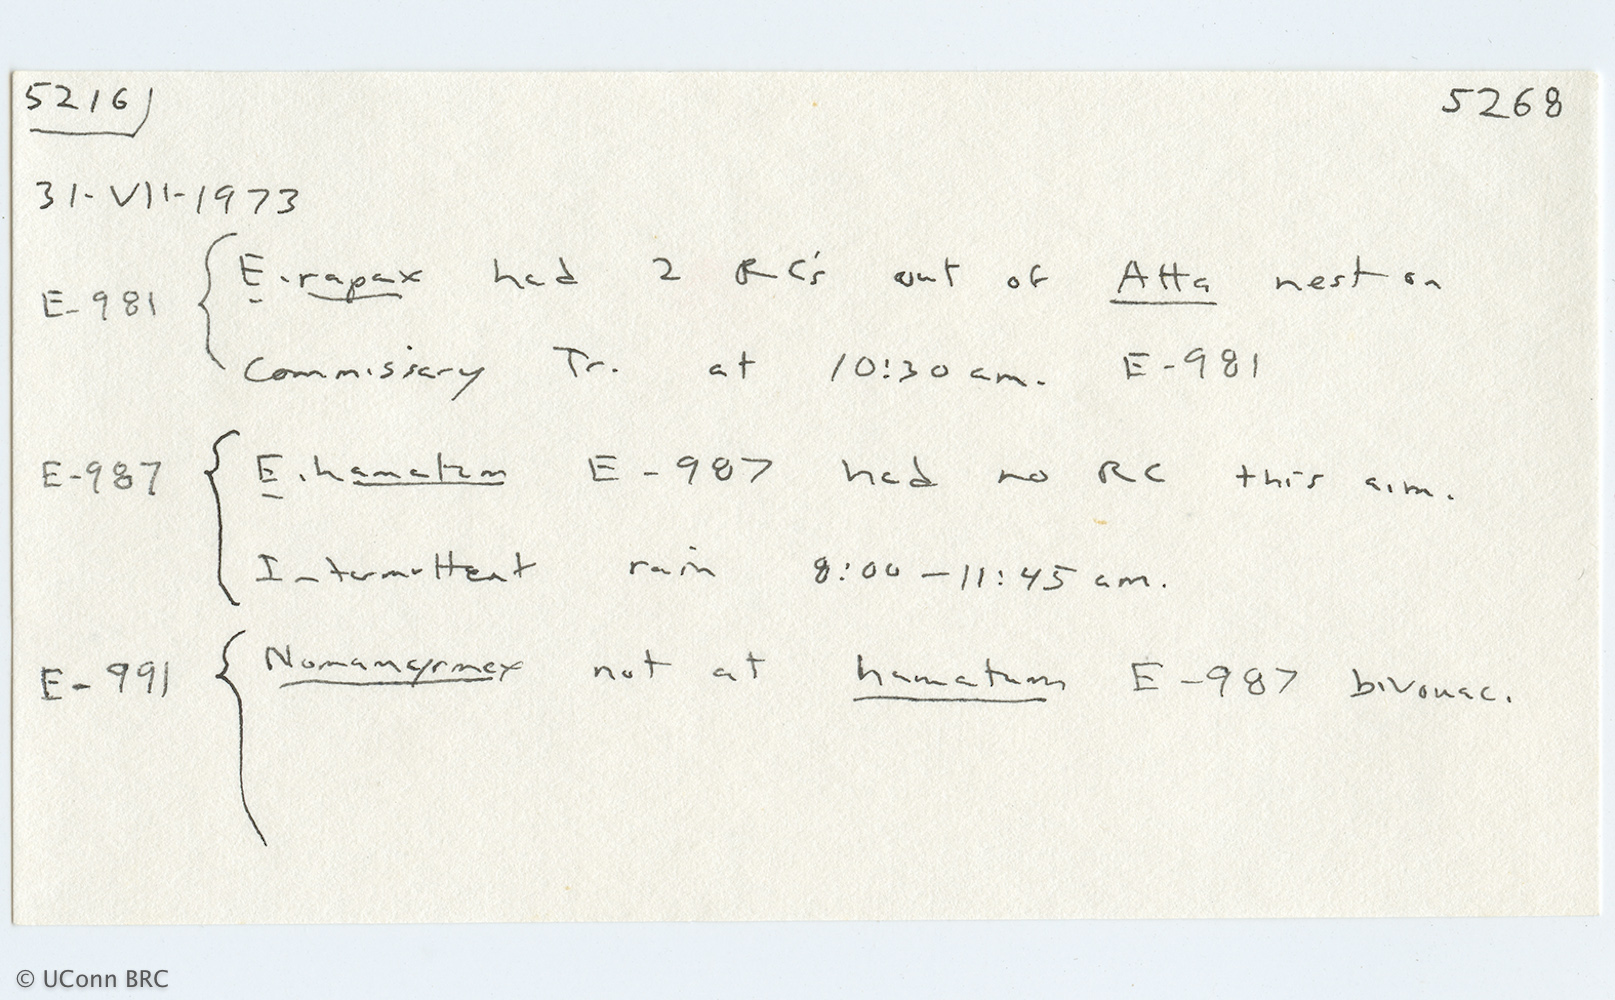 5216 5268
31-VII-1973
E-981 { E. rapax had 2 RC's out of Atta nest on
Commissary Tr. at 10:30 am. E-981
E-987 { E. hamatum E-987 had no RC this a.m.
Intermittent rain 8:00-11:45 am.
E-991 { Nomamyrmex not at hamatum E-987 bivouac.
© UConn BRC